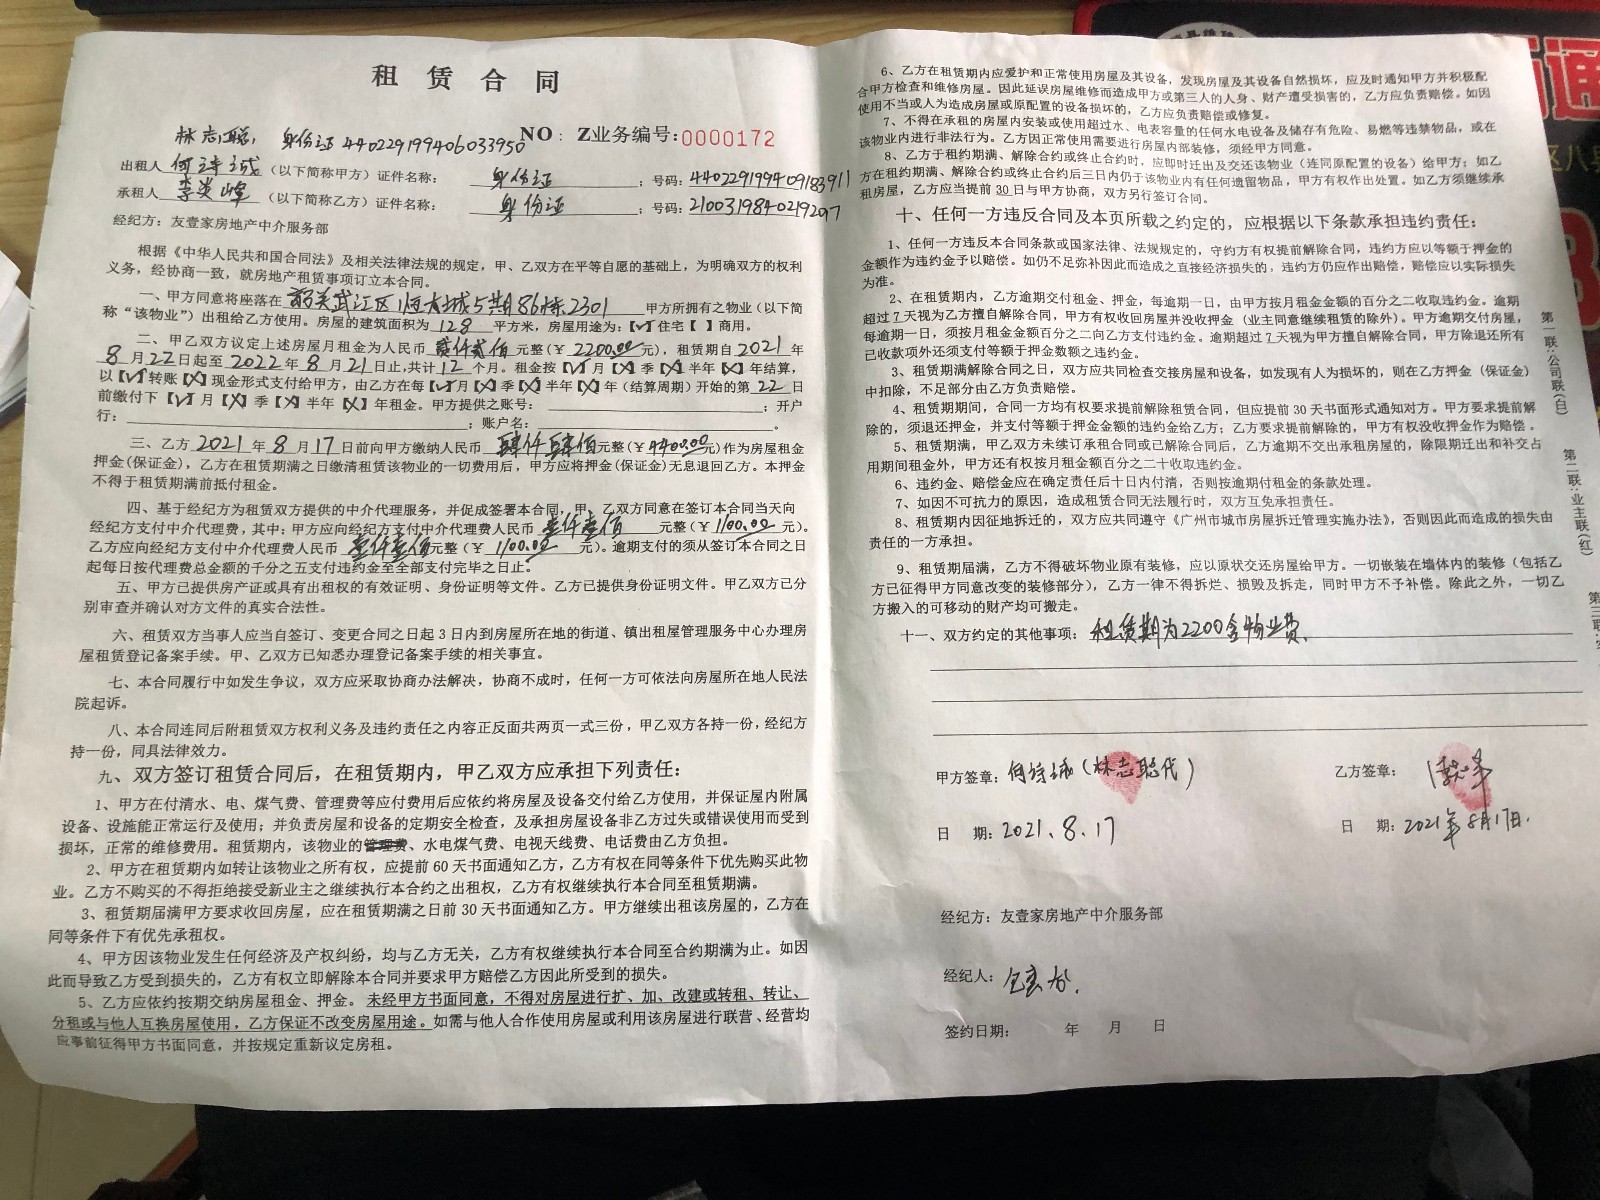 租 赁 合 同
林志聪， 身份证440229199406033950 NO：Z业务编号:0000172
出租人 何诗诚 (以下简称甲方) 证件名称： 身份证 ；号码:440229199409183911
承租人 李炎峰 (以下简称乙方) 证件名称： 身份证 ；号码:210031984021920
经纪方：友壹家房地产中介服务部
根据《中华人民共和国合同法》及相关法律法规的规定，甲、乙双方在平等自愿的基础上，为明确双方的权利
义务，经协商一致，就房地产租赁事项订立本合同。
一、甲方同意将座落在 韶关武江区恒大城5期86栋2301 甲方所拥有之物业（以下简
称“该物业”）出租给乙方使用。房屋的建筑面积为 128 平方米，房屋用途为：【✓】住宅【 】商用。
二、甲乙双方议定上述房屋月租金为人民币 贰仟贰佰 元整(￥ 2200.00 元)，租赁期自 2021 年
8 月 22 日起至 2022 年 8 月 21 日止,共计 12 个月。租金按【✓】月【X】季【X】半年【X】年结算，
以【✓】转账【X】现金形式支付给甲方，由乙方在每【✓】月【X】季【X】半年【X】年（结算周期）开始的第 22 日
前缴付下【✓】月【X】季【X】半年【X】年租金。甲方提供之账号：；开户
行：；账户名：。
三、乙方 2021 年 8 月 17 日前向甲方缴纳人民币 肆仟肆佰 元整(￥4400.00元)作为房屋租金
押金(保证金)，乙方在租赁期满之日缴清租赁该物业的一切费用后，甲方应将押金(保证金)无息退回乙方。本押金
不得于租赁期满前抵付租金。
四、基于经纪方为租赁双方提供的中介代理服务，并促成签署本合同，甲、乙双方同意在签订本合同当天向
经纪方支付中介代理费，其中：甲方应向经纪方支付中介代理费人民币 壹仟壹佰 元整(￥ 1100.00 元)。
乙方应向经纪方支付中介代理费人民币 壹仟壹佰 元整(￥ 1100.00 元)。逾期支付的须从签订本合同之日
起每日按代理费总金额的千分之五支付违约金至全部支付完毕之日止。
五、甲方已提供房产证或具有出租权的有效证明、身份证明等文件。乙方已提供身份证明文件。甲乙双方已分
别审查并确认对方文件的真实合法性。
六、租赁双方当事人应当自签订、变更合同之日起 3 日内到房屋所在地的街道、镇出租屋管理服务中心办理房
屋租赁登记备案手续。甲、乙双方已知悉办理登记备案手续的相关事宜。
七、本合同履行中如发生争议，双方应采取协商办法解决，协商不成时，任何一方可依法向房屋所在地人民法
院起诉。
八、本合同连同后附租赁双方权利义务及违约责任之内容正反面共两页一式三份，甲乙双方各持一份，经纪方
持一份，同具法律效力。
九、双方签订租赁合同后，在租赁期内，甲乙双方应承担下列责任：
1、甲方在付清水、电、煤气费、管理费等应付费用后应依约将房屋及设备交付给乙方使用，并保证屋内附属
设备、设施能正常运行及使用；并负责房屋和设备的定期安全检查，及承担房屋设备非乙方过失或错误使用而受到
损坏，正常的维修费用。租赁期内，该物业的管理费、水电煤气费、电视天线费、电话费由乙方负担。
2、甲方在租赁期内如转让该物业之所有权，应提前 60 天书面通知乙方，乙方有权在同等条件下优先购买此物
业。乙方不购买的不得拒绝接受新业主之继续执行本合约之出租权，乙方有权继续执行本合同至租赁期满。
3、租赁期届满甲方要求收回房屋，应在租赁期满之日前 30 天书面通知乙方。甲方继续出租该房屋的，乙方在
同等条件下有优先承租权。
4、甲方因该物业发生任何经济及产权纠纷，均与乙方无关，乙方有权继续执行本合同至合约期满为止。如因
此而导致乙方受到损失的，乙方有权立即解除本合同并要求甲方赔偿乙方因此所受到的损失。
5、乙方应依约按期交纳房屋租金、押金。未经甲方书面同意，不得对房屋进行扩、加、改建或转租、转让、
分租或与他人互换房屋使用，乙方保证不改变房屋用途。如需与他人合作使用房屋或利用该房屋进行联营、经营均
应事前征得甲方书面同意，并按规定重新议定房租。
6、乙方在租赁期内应爱护和正常使用房屋及其设备，发现房屋及其设备自然损坏，应及时通知甲方并积极配
合甲方检查和维修房屋。因此延误房屋维修而造成甲方或第三人的人身、财产遭受损害的，乙方应负责赔偿。如因
使用不当或人为造成房屋或原配置的设备损坏的，乙方应负责赔偿或修复。
7、不得在承租的房屋内安装或使用超过水、电表容量的任何水电设备及储存有危险、易燃等违禁物品，或在
该物业内进行非法行为。乙方因正常使用需要进行房屋内部装修，须经甲方同意。
8、乙方于租约期满、解除合约或终止合约时，应即时迁出及交还该物业（连同原配置的设备）给甲方；如乙
方在租约期满、解除合约或终止合约后三日内仍于该物业内有任何遗留物品，甲方有权作出处置。如乙方须继续承
租房屋，乙方应当提前 30 日与甲方协商，双方另行签订合同。
十、任何一方违反合同及本页所载之约定的，应根据以下条款承担违约责任：
1、任何一方违反本合同条款或国家法律、法规规定的，守约方有权提前解除合同，违约方应以等额于押金的
金额作为违约金予以赔偿。如仍不足弥补因此而造成之直接经济损失的，违约方仍应作出赔偿，赔偿应以实际损失
为准。
2、在租赁期内，乙方逾期交付租金、押金，每逾期一日，由甲方按月租金金额的百分之二收取违约金。逾期
超过 7 天视为乙方擅自解除合同，甲方有权收回房屋并没收押金（业主同意继续租赁的除外）。甲方逾期交付房屋，
每逾期一日，须按月租金金额百分之二向乙方支付违约金。逾期超过 7 天视为甲方擅自解除合同，甲方除退还所有
已收款项外还须支付等额于押金数额之违约金。
3、租赁期满解除合同之日，双方应共同检查交接房屋和设备，如发现有人为损坏的，则在乙方押金（保证金）
中扣除，不足部分由乙方负责赔偿。
4、租赁期期间，合同一方均有权要求提前解除租赁合同，但应提前 30 天书面形式通知对方。甲方要求提前解
除的，须退还押金，并支付等额于押金金额的违约金给乙方；乙方要求提前解除的，甲方有权没收押金作为赔偿。
5、租赁期满，甲乙双方未续订承租合同或已解除合同后，乙方逾期不交出承租房屋的，除限期迁出和补交占
用期间租金外，甲方还有权按月租金额百分之二十收取违约金。
6、违约金、赔偿金应在确定责任后十日内付清，否则按逾期付租金的条款处理。
7、如因不可抗力的原因，造成租赁合同无法履行时，双方互免承担责任。
8、租赁期内因征地拆迁的，双方应共同遵守《广州市城市房屋拆迁管理实施办法》，否则因此而造成的损失由
责任的一方承担。
9、租赁期届满，乙方不得破坏物业原有装修，应以原状交还房屋给甲方。一切嵌装在墙体内的装修（包括乙
方已征得甲方同意改变的装修部分），乙方一律不得拆烂、损毁及拆走，同时甲方不予补偿。除此之外，一切乙
方搬入的可移动的财产均可搬走。
十一、双方约定的其他事项：租赁期为2200含物业费、
甲方签章：何诗诚（林志聪代）
乙方签章：
日 期：2021、8、17
日 期：2021年8月17日.
经纪方：友壹家房地产中介服务部
经纪人：
签约日期： 年 月 日
第一联：公司联(白)
第二联：业主联(红)
第三联：